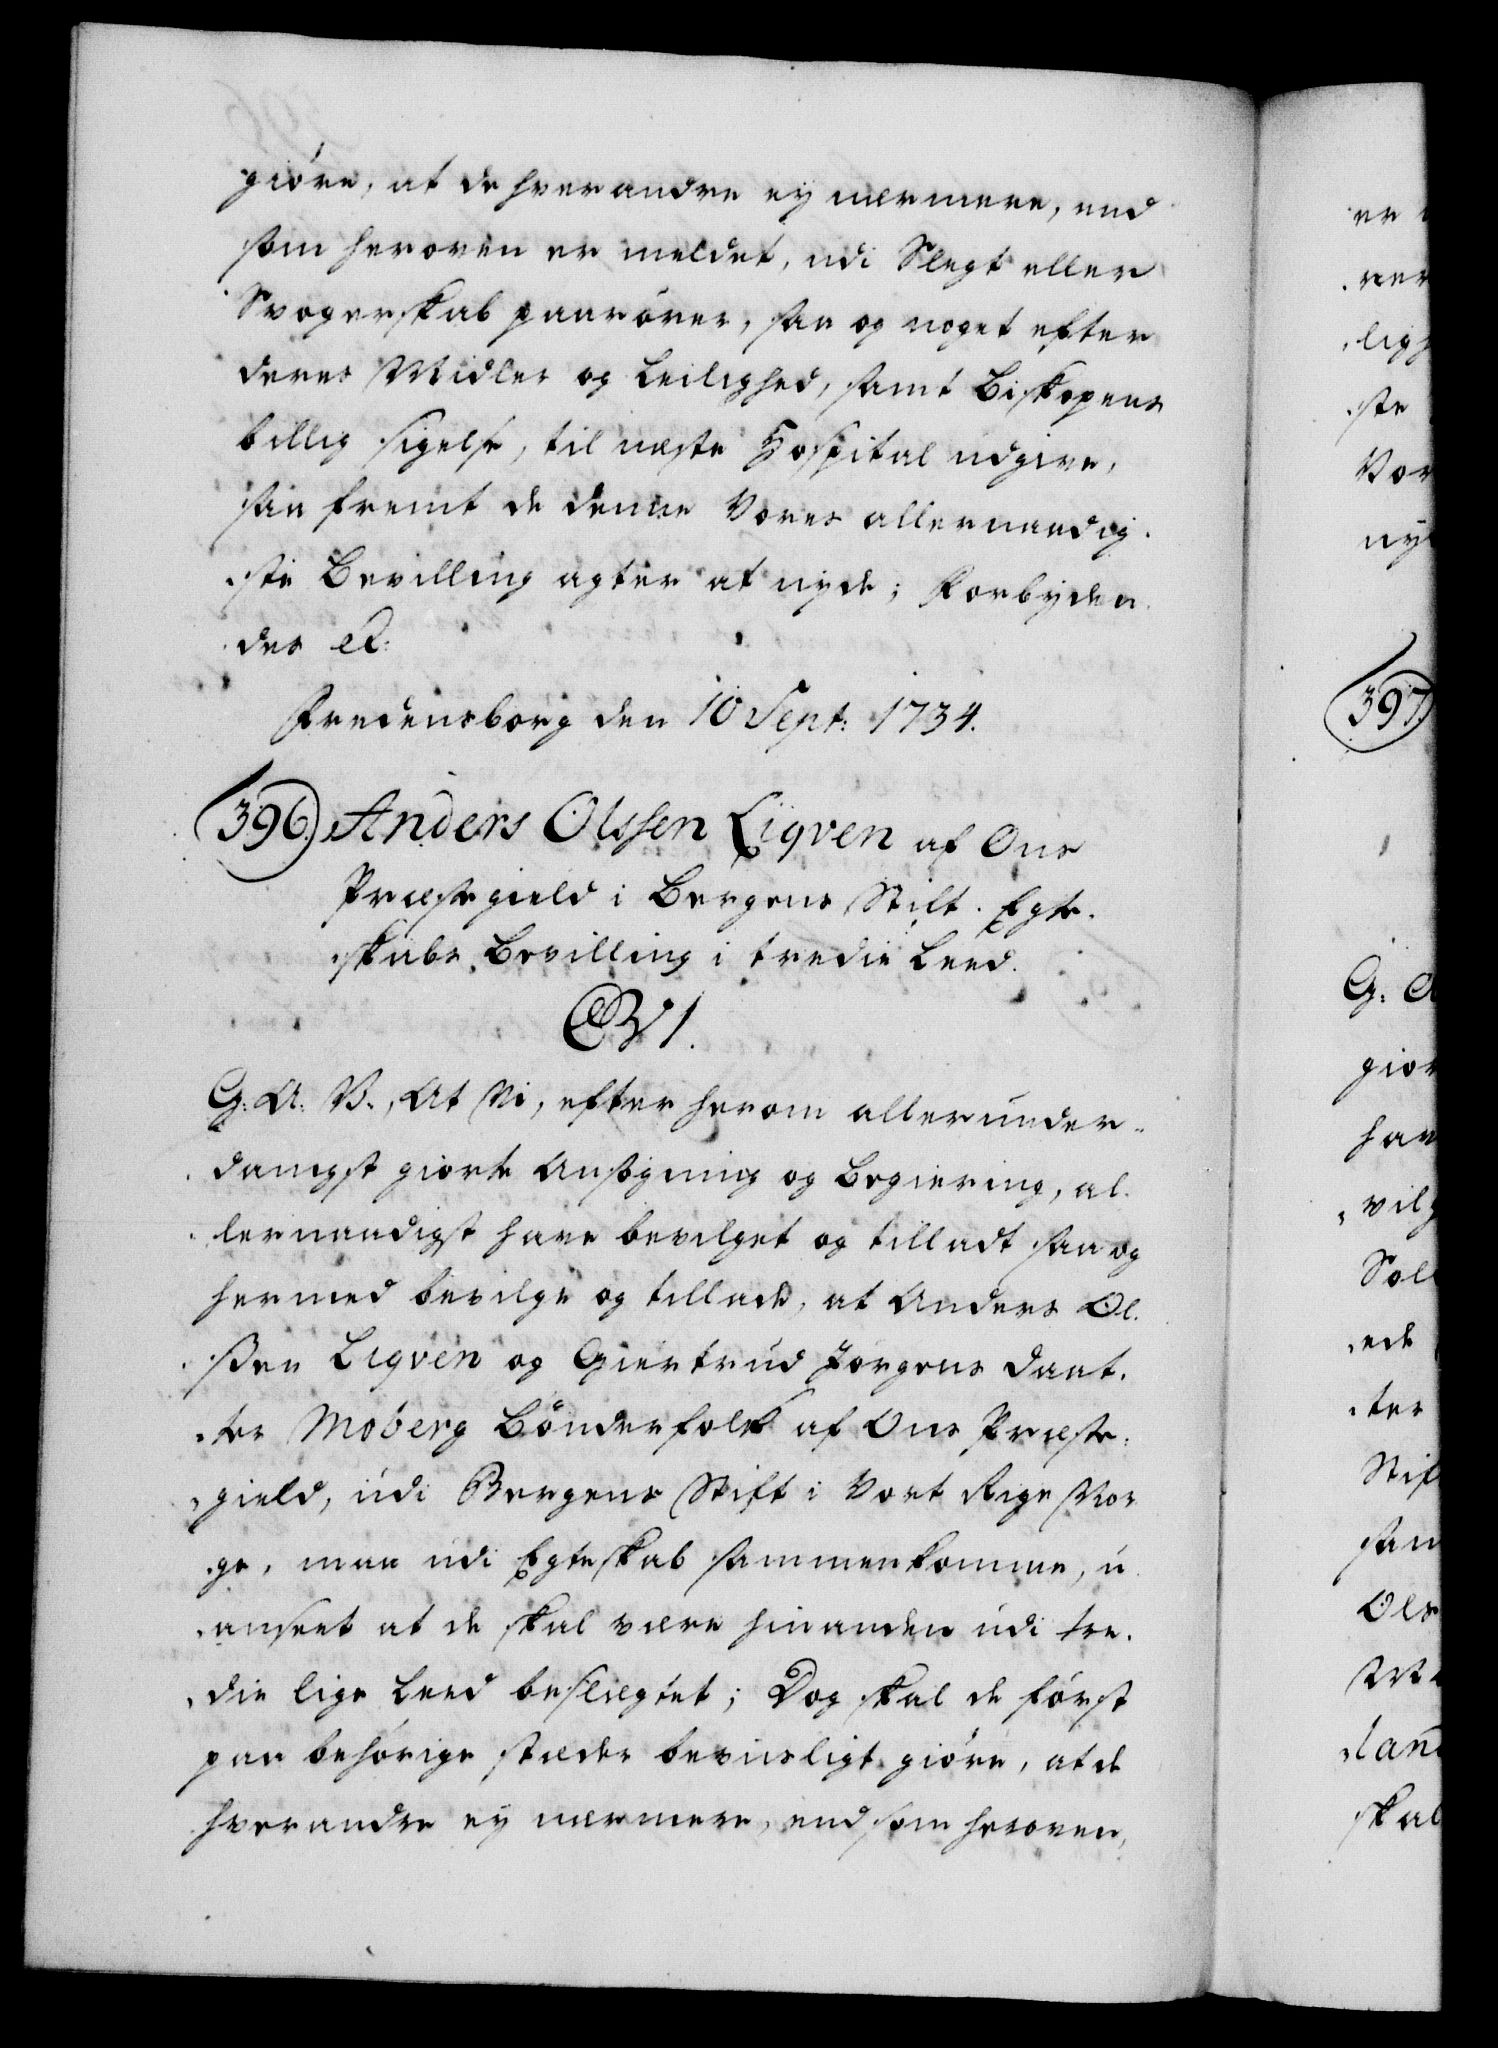 giöre, at de hverandre ey nærmere, end
som heroven er meldet, udi Slegt eller
Svogerskab paarörer, saa og noget efter
deres Midler og Leilighed, samt Biskopens
billig sigelse, til næste Hospital udgive,
saa fremt de denne Vores allernaadig-
ste Bevilling agter at nyde; Forbyden-
des &:
Fredensborg den 10 Sept: 1734.
396. Anders Olssen Liqven af Ous
Præstegield i Bergens Stift. Egte-
skabs Bevilling i tredie Leed.
C VI.
G: A: V., At Vi, efter herom allerunder-
danigst giorte Ansøgning og Begiering, al-
lernaadigst have bevilget og tilladt saa og
hermed bevilge og tillade, at Anders Ol-
ssen Liqven og Giertrud Jørgens Daat-
ter Moberg Bönderfolk af Ous Præste-
gield, udi Bergens Stift i Vort Rige Nor
ge, maa udi Egteskab sammenkomme, u
anseet at de skal være hinanden udi tre-
die lige Leed beslægtet; Dog skal de först
paa behörige stæder beviisligt giöre, at de
hverandre ey nærmere, end som heroven,
397.
ste
G:
skal